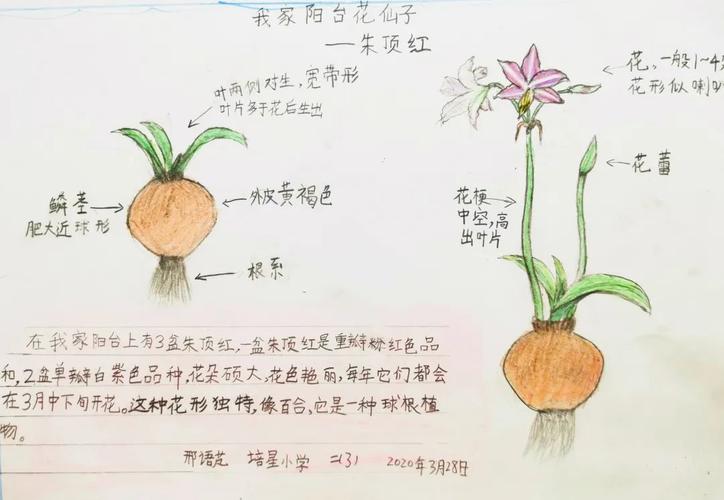 我家阳台花仙子
——朱顶红
叶两侧对生,宽带形
叶片多于花后生出
鳞茎
肥大近球形
外皮黄褐色
根系
花,一般1~4朵
花形似喇叭
花蕾
花梗
中空,高
出叶片
在我家阳台上有3盆朱顶红,一盆朱顶红是重瓣粉红色品
和,2盆单瓣白紫色品种,花朵硕大,花色艳丽,每年它们都会
在3月中下旬开花。这种花形独特,像百合,它是一种球根植
物。
邢语芘 培星小学 二(3) 2020年3月28日